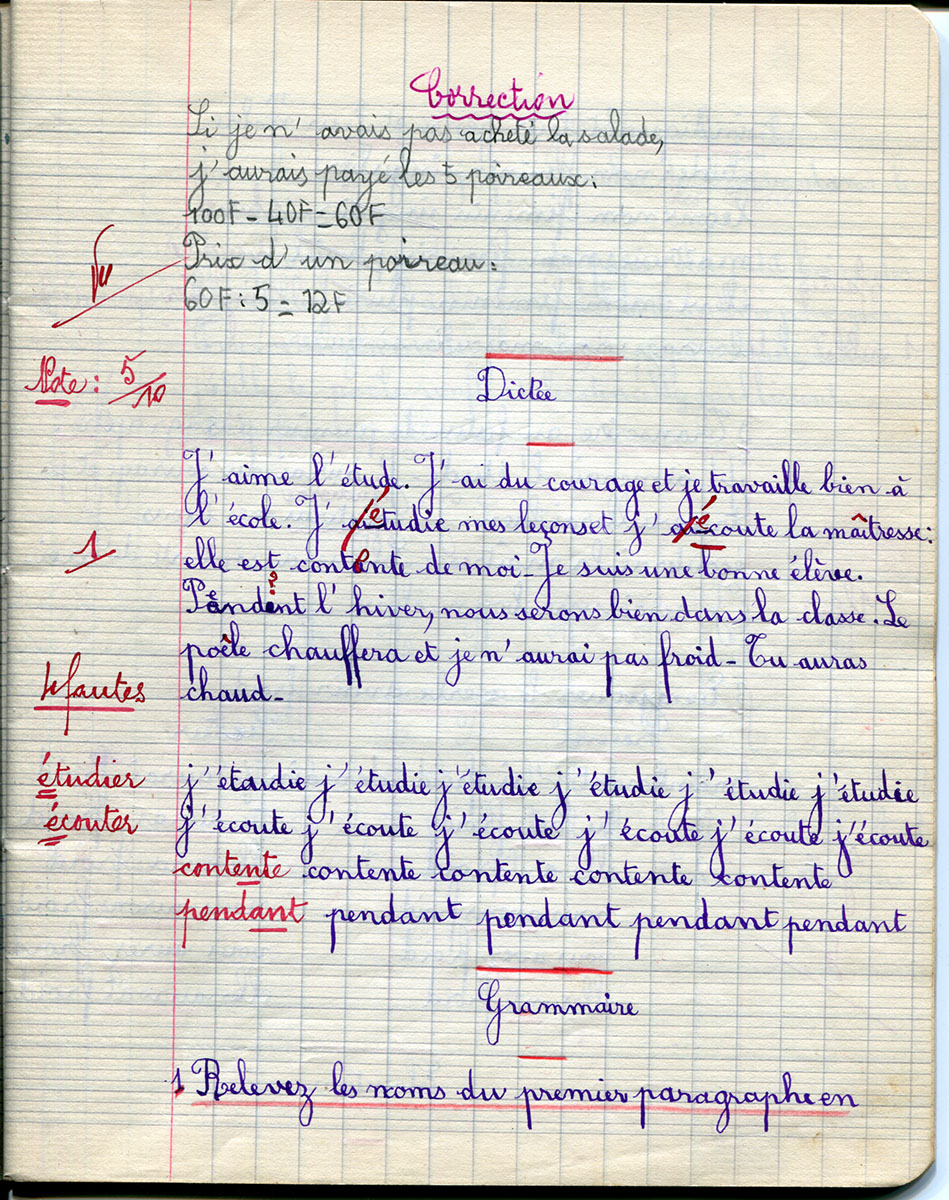 Correction
Si je n' avais pas acheté la salade,
j' aurais payé les 5 poireaux:
100F - 40F = 60F
Vu
Prix d' un poireau:
60F : 5 = 12F
Note : 5/10
Dictée
J' aime l' étude. J' ai du courage et je travaille bien à
l' école. J' étudie mes leçons et j' écoute la maîtresse:
1
elle est contente de moi - Je suis une bonne élève.
Pendent l' hiver, nous serons bien dans la classe. Le
poêle chauffera et je n' aurai pas froid - Tu auras
4 fautes
chaud -
étudier j' étudie j' étudie j' étudie j' étudie j' étudie j' étudie
écouter j' écoute j' écoute j' écoute j' écoute j' écoute j' écoute
contente contente contente contente contente
pendant pendant pendant pendant pendant
Grammaire
1 Relevez les noms du premier paragraphe en